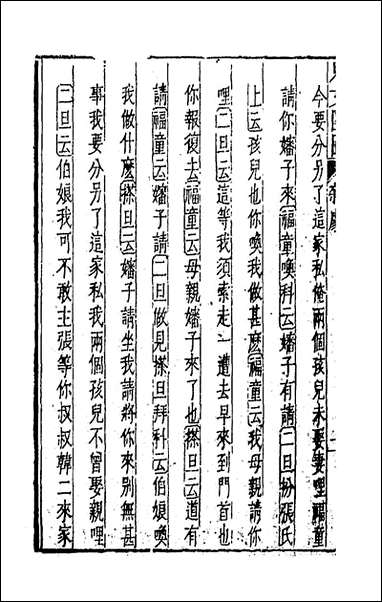 今要分另了這家私俺兩個孩兒未娶妻哩福童
請你嬸子來福童喚科云嬸子有請二旦扮張氏
上云孩兒也你喚我做甚麽福童云我母親請你
哩二旦云這等我須索走一遭去早來到門首也
你報復去福童云母親嬸子來了也搽旦云道有
請福童云嬸子請二旦做見搽旦拜科云伯娘喚
我做什麽搽旦云嬸子請坐我請將你來別無甚
事我要分另了這家私我兩個孩兒不曾娶親哩
二旦云伯娘我可不敢主張等你叔叔韓二來家